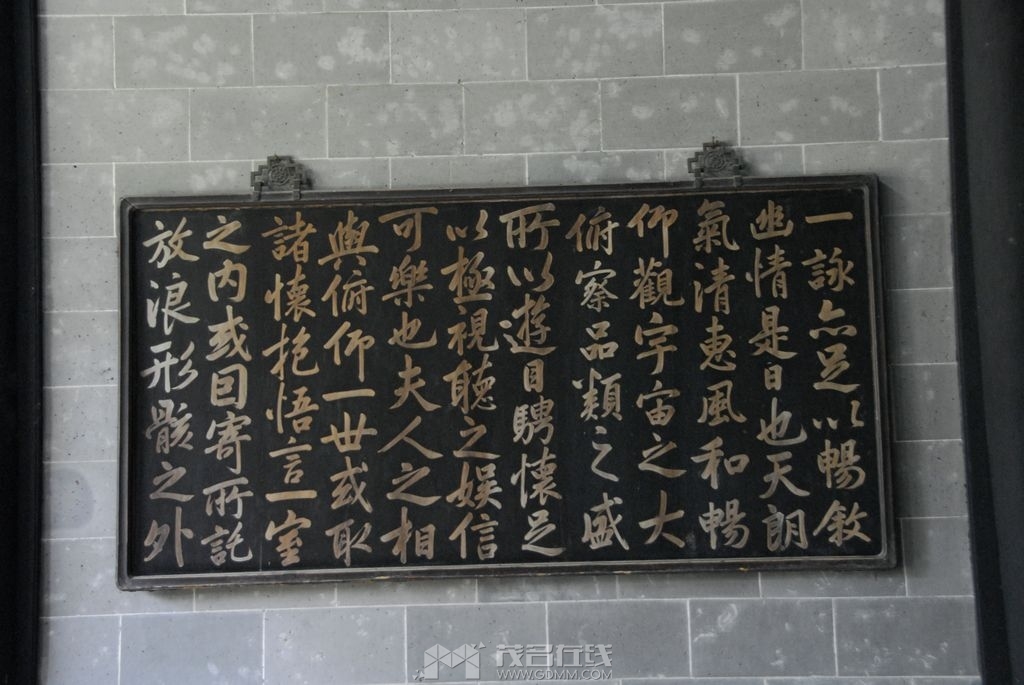 一詠亦足以暢敘
幽情是日也天朗
氣清惠風和暢
仰觀宇宙之大
俯察品類之盛
所以遊目騁懷足
以極視聽之娛信
可樂也夫人之相
與俯仰一世或取
諸懷抱悟言一室
之內或因寄所託
放浪形骸之外
茂名在线
WWW.GDMM.COM